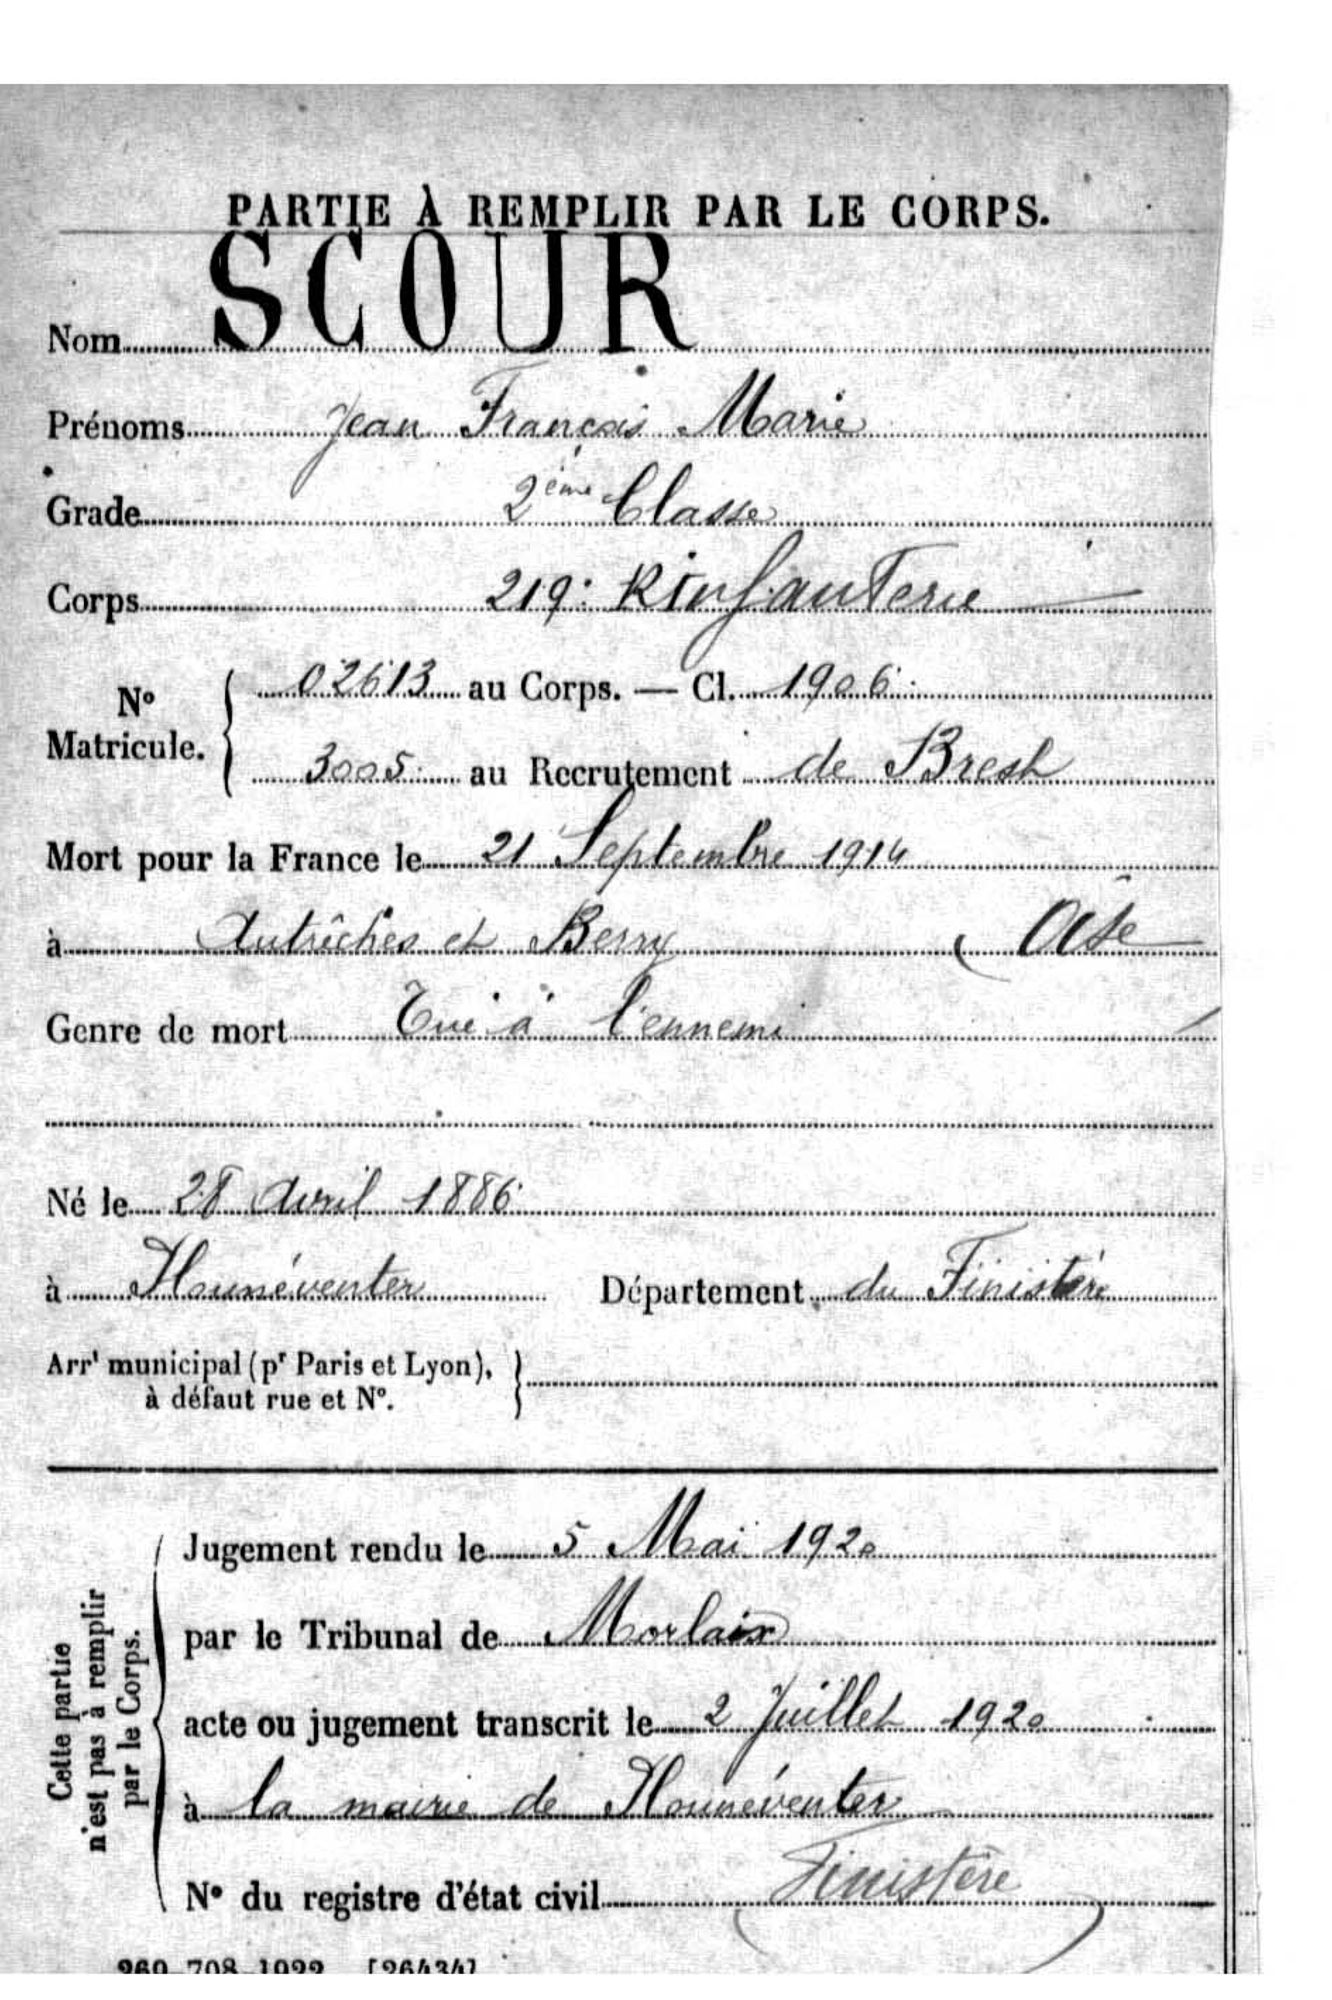 PARTIE À REMPLIR PAR LE CORPS.
Nom SCOUR
Prénoms Jean François Marie
Grade 2ème Classe
Corps 219e R infanterie
No Matricule. { 02613 au Corps. — Cl. 1906
3005 au Recrutement de Brest
Mort pour la France le 21 Septembre 1914
à Autrêches et Berry (Oise
Genre de mort Tué à l'ennemi
Né le 28 Avril 1886
à Plounéventer Département du Finistère
Arrt municipal (pr Paris et Lyon), }
à défaut rue et No.
Cette partie n'est pas à remplir par le Corps.
Jugement rendu le 5 Mai 1920
par le Tribunal de Morlaix
acte ou jugement transcrit le 2 Juillet 1920
à la mairie de Plounéventer
No du registre d'état civil (Finistère)
269-708-1922. [26434]